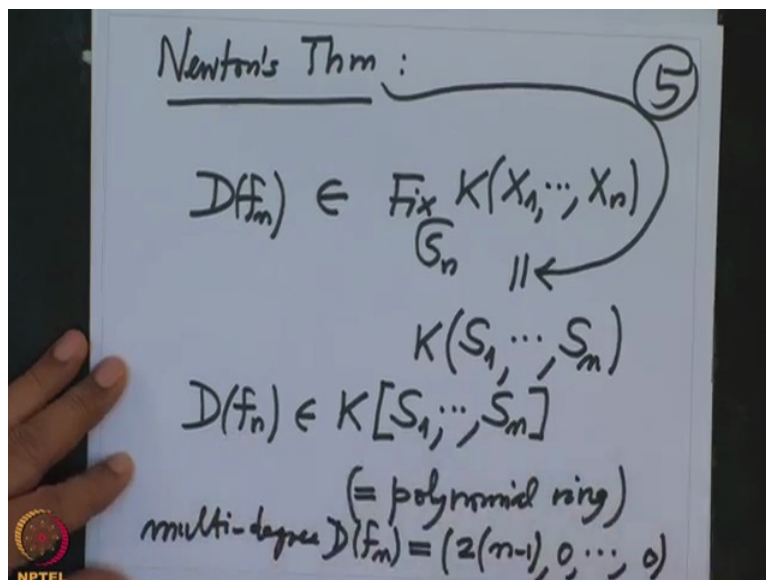 Newton's Thm :
5
D(fₙ) ∈ Fix K(X₁, ..., Xₙ)
𝔖ₙ
||
K(S₁, ..., Sₙ)
D(fₙ) ∈ K[S₁, ..., Sₙ]
(= polynomial ring)
multi-degree D(fₙ) = (2(n-1), 0, ..., 0)
NPTEL